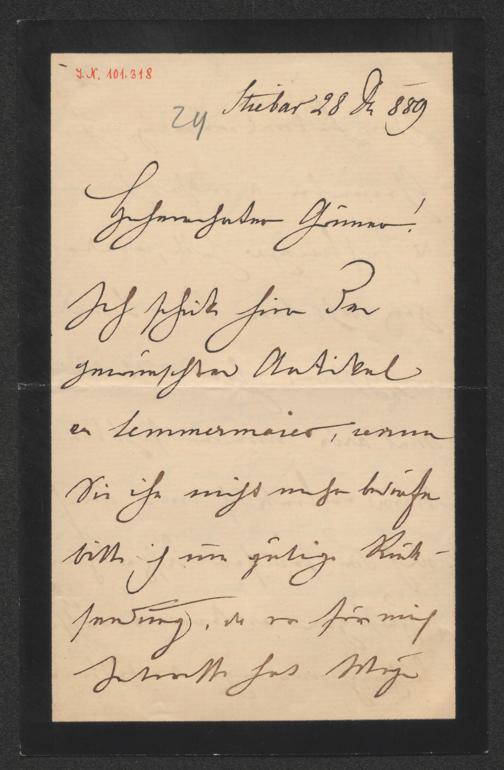 J.N. 101.318
24
Stiebar 28 889
Hochverehrter Gönner!
Ich schicke hier den
gewünschten Artikel
Lemmermaier, wenn
Sie ihn nicht mehr bedürfen
bitte ich um gütige Rück-
sendung, da er für mich
Interesse hat